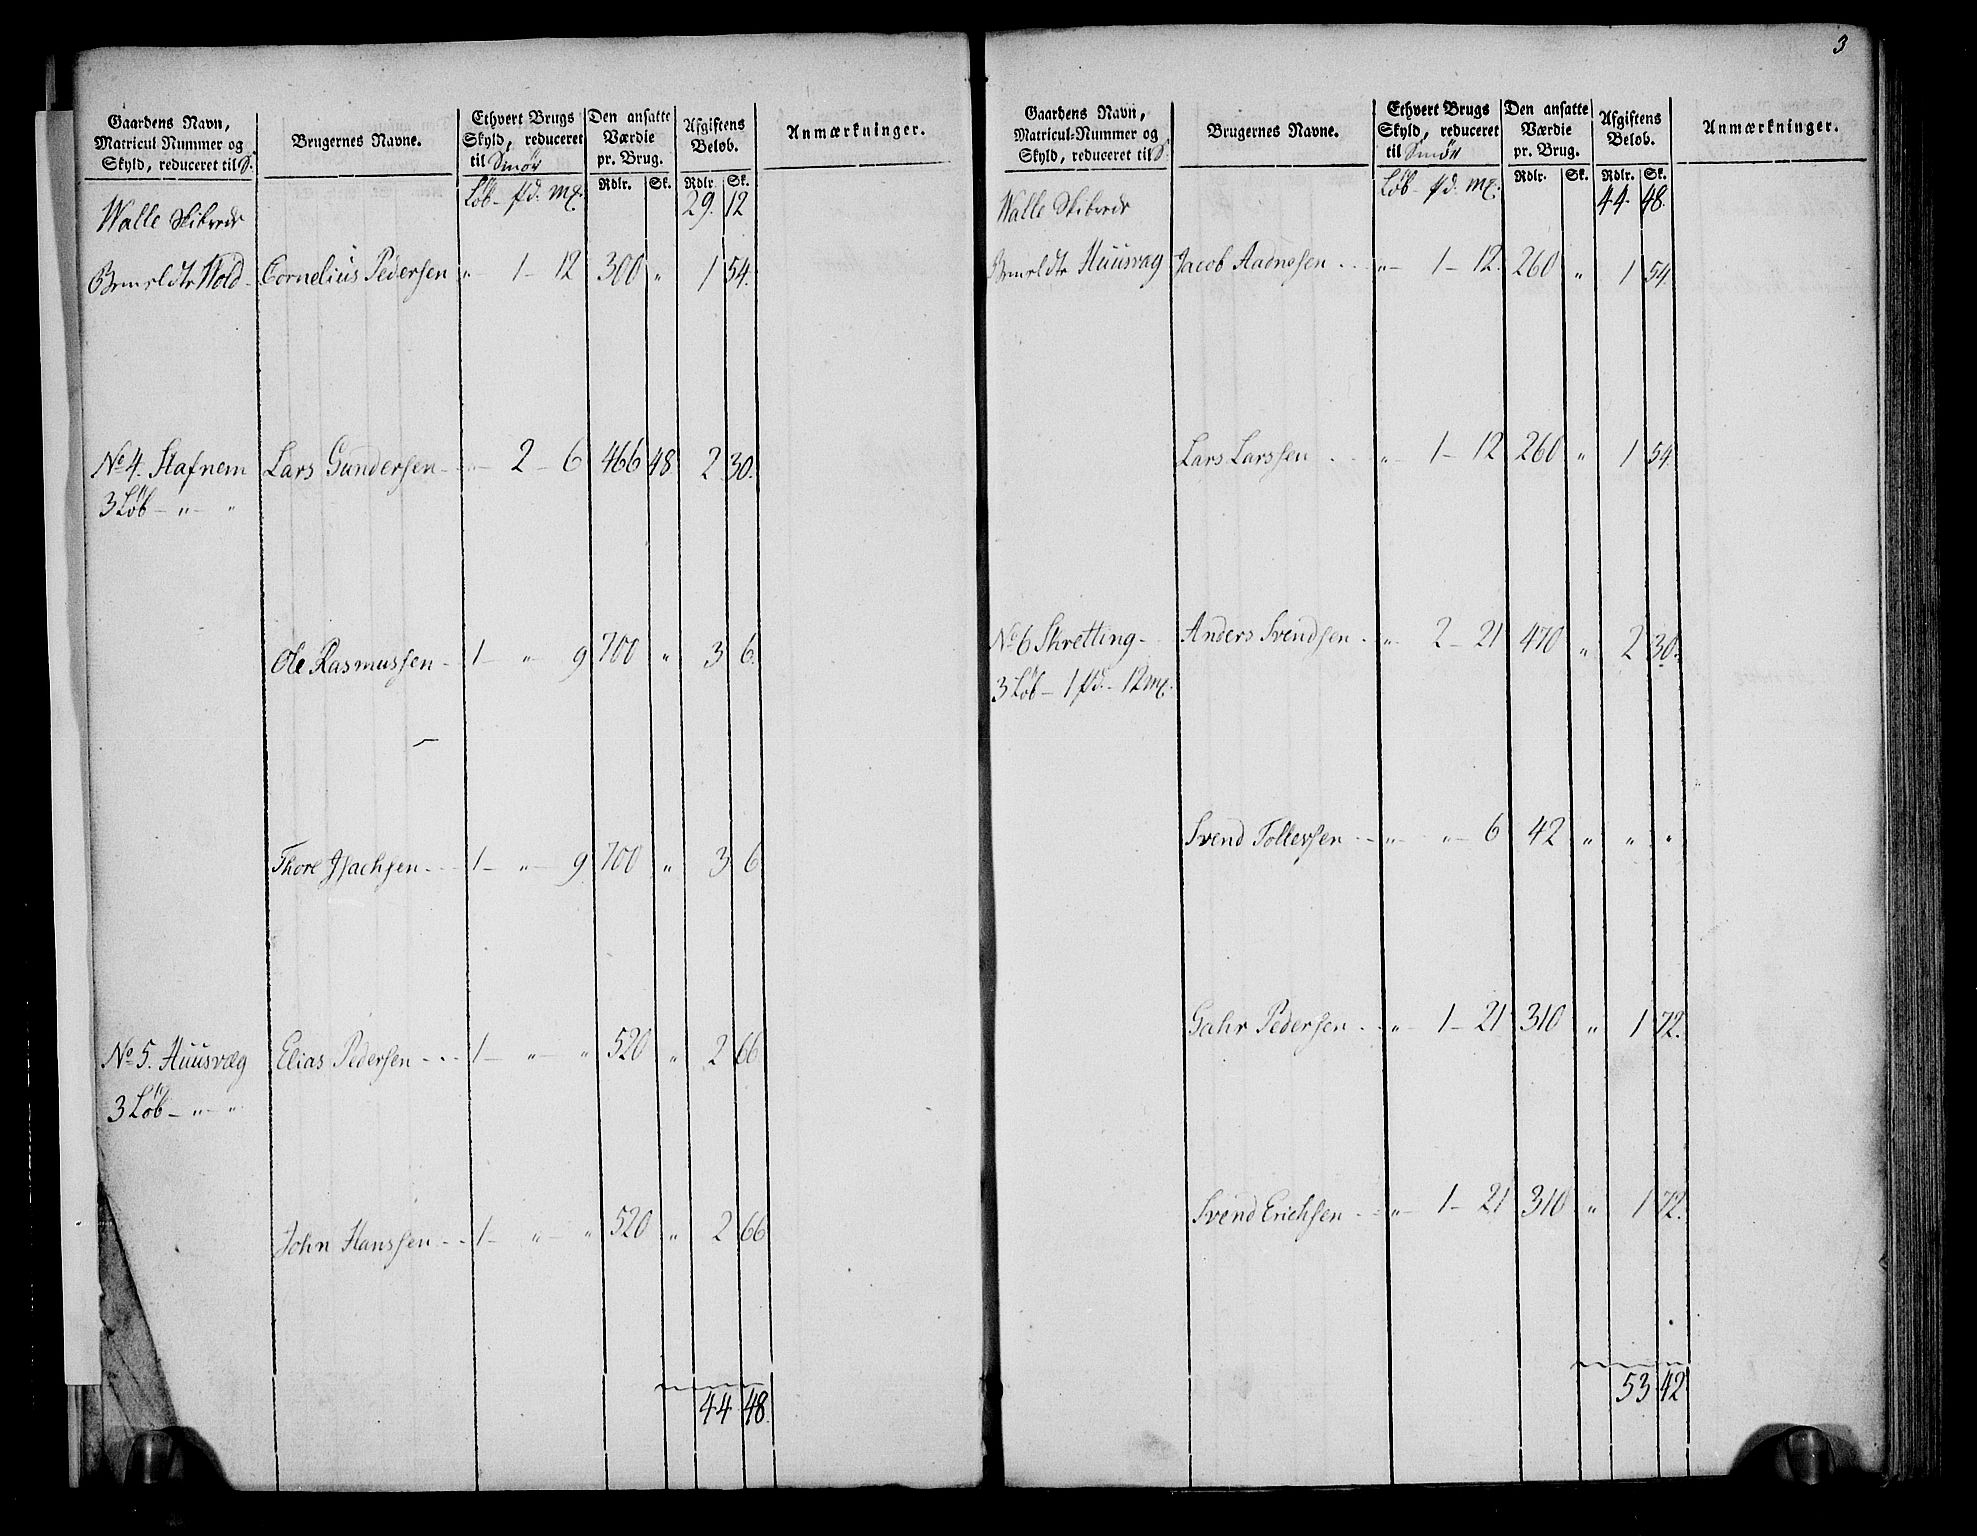 Gaardens Navn, Matricul Nummer og Skyld, reduceret til S. | Brugernes Navne. | Ethvert Brugs Skyld, reduceret til Smör | Den ansatte Værdie pr. Brug. | Afgiftens Beløb. | Anmærkninger.
Löb - pd. mk. | Rdlr. | Sk. | Rdlr. | Sk.
Walle Skibrede 29. 12
Wold - Cornelius Pedersen „ - 1 - 12 300 „ 1 54.
No 4. Stafnem Lars Gundersen - „ - 2 - 6 466 48 2 30.
3 Löb - „ - „
Ole Rasmussen - 1 - „ - 9 700 „ 3 6.
Thore Isachsen - - 1 - „ - 9 700 „ 3 6
No 5. Huusvæg Elias Pedersen - - - 1 - „ - „ 520 „ 2 66
3 Löb - „ - „
John Hanssen - - 1 - „ - „ 520 „ 2 66
44 48.
3
Gaardens Navn, Matricul-Nummer og Skyld, reduceret til S. | Brugernes Navne. | Ethvert Brugs Skyld, reduceret til Smör | Den ansatte Værdie pr. Brug. | Afgiftens Beløb. | Anmærkninger.
Löb - pd. mk. | Rdlr. | Sk. | Rdlr. | Sk.
Walle Skibrede 44. 48.
Huusvæg Jacob Aadnesen - - „ - 1 - 12. 260 „ 1 54.
Lars Larssen - „ - 1 - 12 260 „ 1 54.
No 6 Skretting - Anders Svendsen - „ - 2 - 21 470 „ 2 30.
3 Löb - 1 pd. - 12 mk.
Svend Tollevsen - - „ - „ - 6 42 „ „ „
Gahr Pedersen - - „ - 1 - 21 310 „ 1 72.
Svend Erichsen - - „ - 1 - 21 310 „ 1 72.
53 42